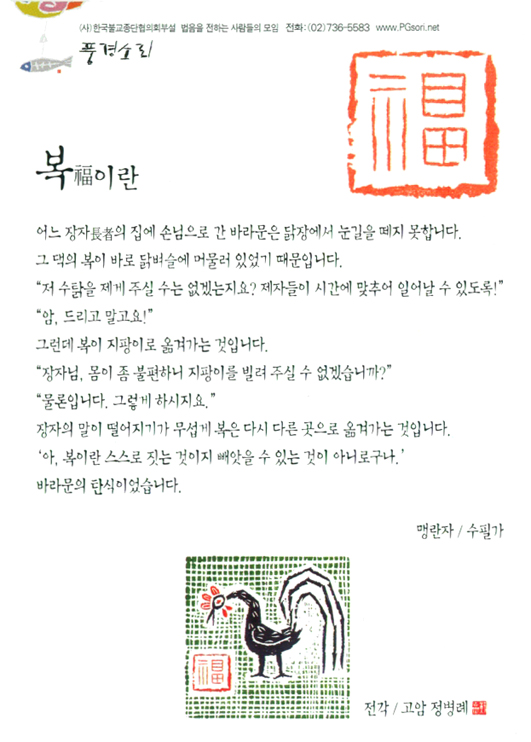 (사)한국불교종단협의회부설 법음을 전하는 사람들의 모임 전화:(02)736-5583 www.PGsori.net
풍경소리
福
복福이란
어느 장자長者의 집에 손님으로 간 바라문은 닭장에서 눈길을 떼지 못합니다.
그 댁의 복이 바로 닭벼슬에 머물러 있었기 때문입니다.
“저 수탉을 제게 주실 수는 없겠는지요? 제자들이 시간에 맞추어 일어날 수 있도록!”
“암, 드리고 말고요!”
그런데 복이 지팡이로 옮겨가는 것입니다.
“장자님, 몸이 좀 불편하니 지팡이를 빌려 주실 수 없겠습니까?”
“물론입니다. 그렇게 하시지요.”
장자의 말이 떨어지기가 무섭게 복은 다시 다른 곳으로 옮겨가는 것입니다.
‘아, 복이란 스스로 짓는 것이지 빼앗을 수 있는 것이 아니로구나.’
바라문의 탄식이었습니다.
맹란자 / 수필가
福
전각 / 고암 정병례